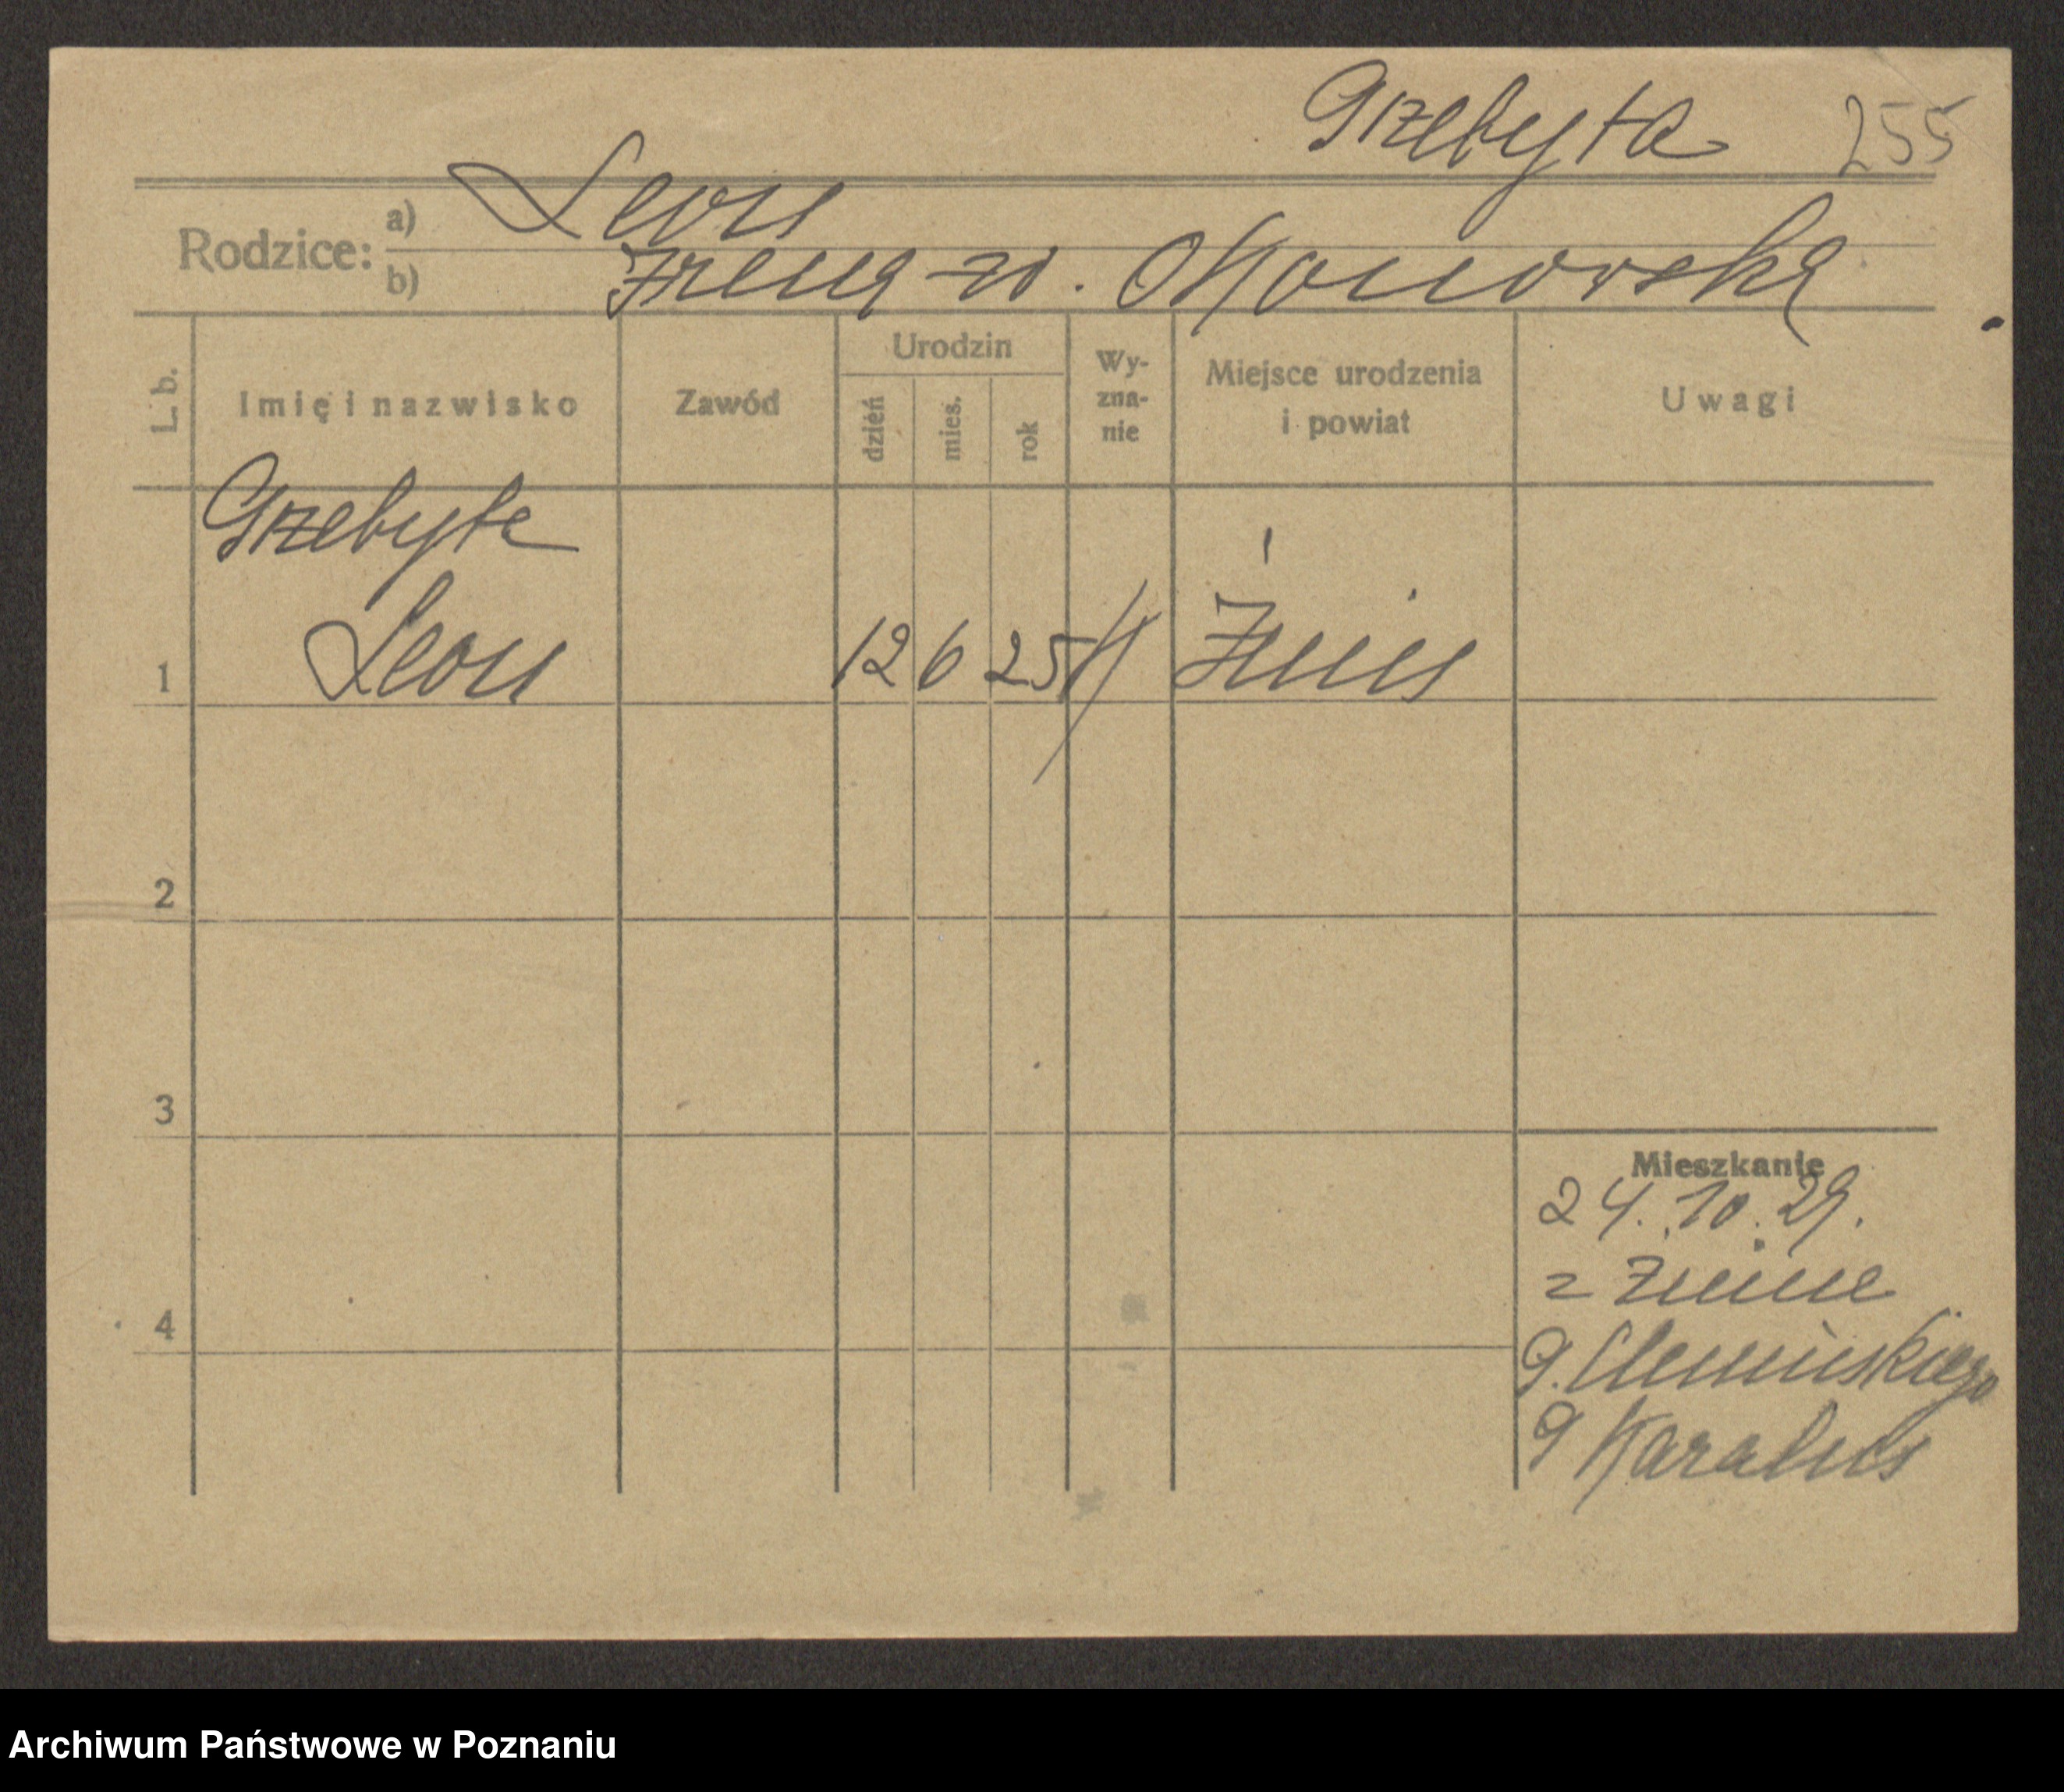 Grzebyta 255
Rodzice: a) Leon
b) Irena z d.
L. b.
Imię i nazwisko
Zawód
Urodzin
dzień
mies.
rok
Wy-
zna-
nie
Miejsce urodzenia
i powiat
Uwagi
Grzebyta
1 Leon 12 6 25 K Żnin
2
3
4
Mieszkanie
24. 10. 29.
z Żnina
Archiwum Państwowe w Poznaniu